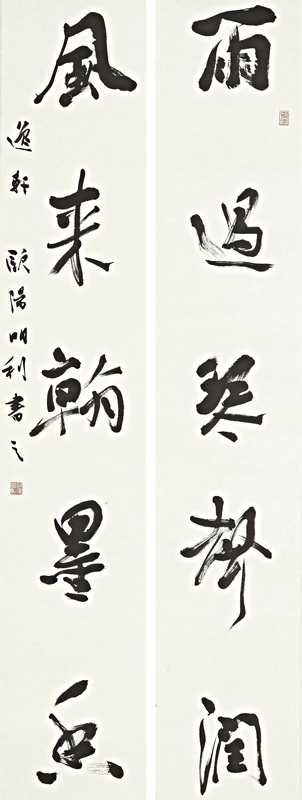 雨過琴聲潤
風来翰墨香
軒 歐陽明利書之